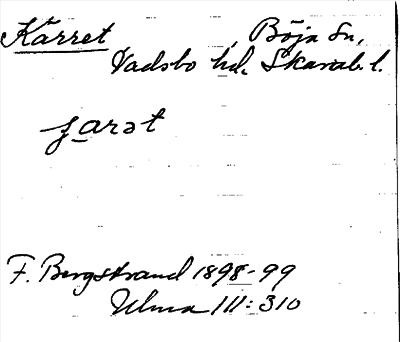 Kärret , Böja sn,
Vadsbo hd. Skarab. l.
ɟarət
F. Bergstrand 1898-99
Ulma 111:310